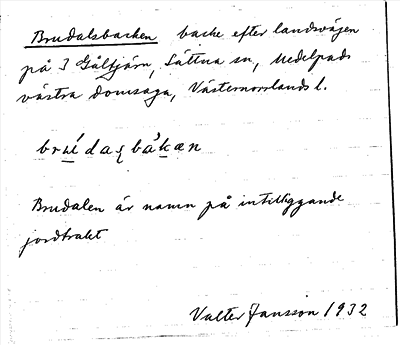 Brudalsbacken backe efter landsvägen
på 3 Gåltjärn, Sättna sn, Medelpads
västra domsaga, Västernorrlands l.
brúdaʂbákæn
Brudalen är namn på intilliggande
jordtrakt
Valter Jansson 1932